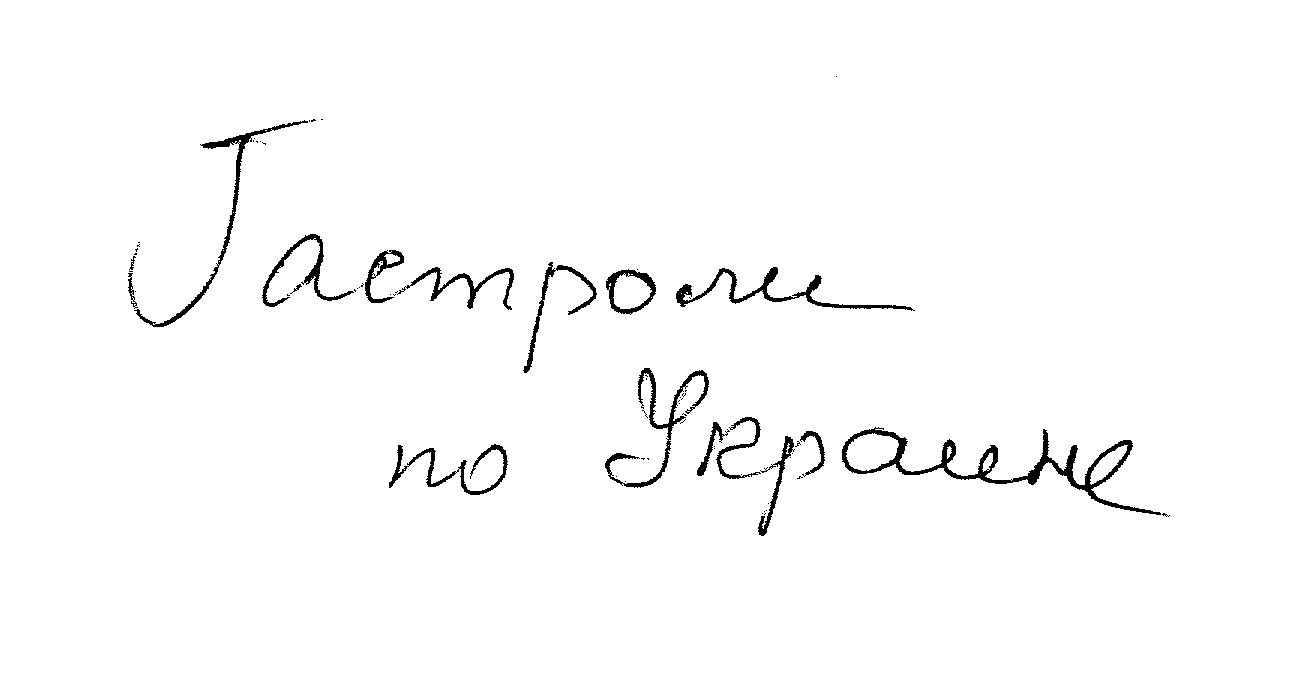 Гастроли
по Украине